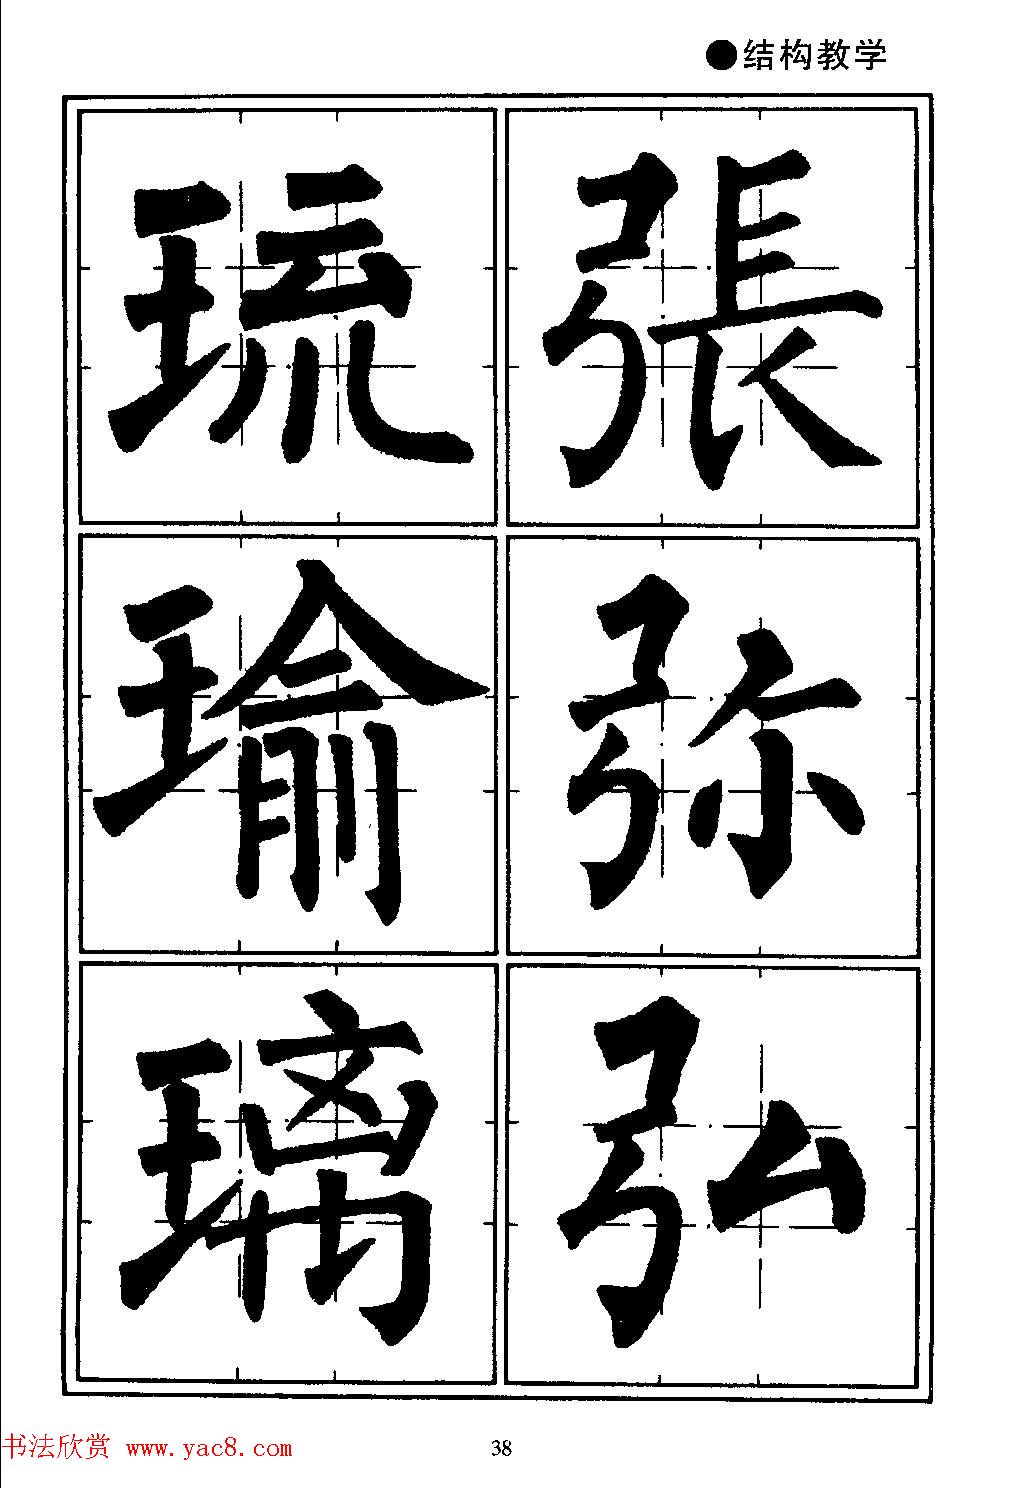 ●结构教学
張
弥
弘
琉
瑜
璃
书法欣赏 www.yac8.com
38